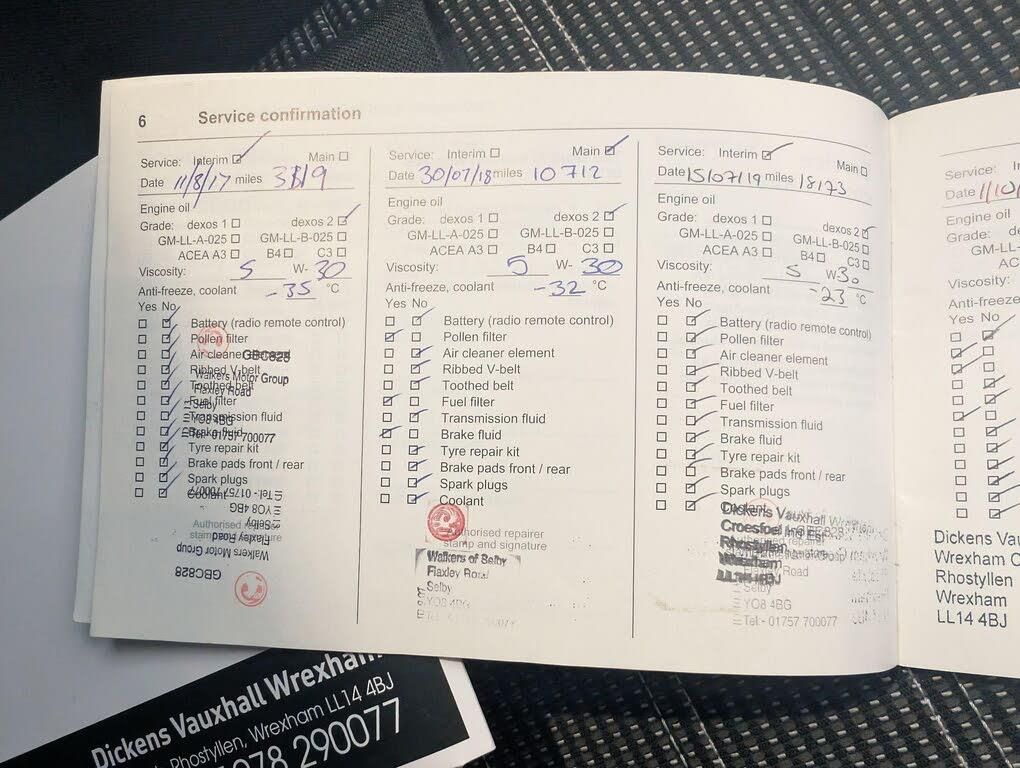 6 Service confirmation
Service: Interim Main
Date 11/8/17 miles 3319
Engine oil
Grade: dexos 1 dexos 2
GM-LL-A-025 GM-LL-B-025
ACEA A3 B4 C3
Viscosity: 5 W- 30
Anti-freeze, coolant -35 °C
Yes No
Battery (radio remote control)
Pollen filter
Air cleaner
GBC828
Ribbed V-belt
Walkers Motor Group
Toothed belt
Flaxley Road
Fuel filter
Selby
Transmission fluid
YO8 4BG
Brake fluid
Tel:- 01757 700077
Tyre repair kit
Brake pads front / rear
Spark plugs
Coolant
Tel:- 01757 700077
YO8 4BG
Selby
Authorised repairer
stamp and signature
Flaxley Road
Walkers Motor Group
GBC828
Service: Interim Main
Date 30/07/18 miles 10712
Engine oil
Grade: dexos 1 dexos 2
GM-LL-A-025 GM-LL-B-025
ACEA A3 B4 C3
Viscosity: 5 W- 30
Anti-freeze, coolant -32 °C
Yes No
Battery (radio remote control)
Pollen filter
Air cleaner element
Ribbed V-belt
Toothed belt
Fuel filter
Transmission fluid
Brake fluid
Tyre repair kit
Brake pads front / rear
Spark plugs
Coolant
Authorised repairer
stamp and signature
Walkers of Selby
Flaxley Road
Selby
YO8 4BG
Service: Interim Main
Date 15/07/19 miles 18173
Engine oil
Grade: dexos 1 dexos 2
GM-LL-A-025 GM-LL-B-025
ACEA A3 B4 C3
Viscosity: 5 W 30
Anti-freeze, coolant -23 °C
Yes No
Battery (radio remote control)
Pollen filter
Air cleaner element
Ribbed V-belt
Toothed belt
Fuel filter
Transmission fluid
Brake fluid
Tyre repair kit
Brake pads front / rear
Spark plugs
Coolant
Dickens Vauxhall
Croesfoel Ind Est
GBC828
Rhostyllen
Wrexham
LL14 4BJ
Road
Selby
YO8 4BG
Tel:- 01757 700077
Service: In
Date 1/10/
Engine oil
Grade: de
GM-LL-
AC
Viscosity:
Anti-freeze
Yes No
Dickens Vau
Wrexham C
Rhostyllen
Wrexham
LL14 4BJ
Dickens Vauxhall Wrexham
Rhostyllen, Wrexham LL14 4BJ
978 290077